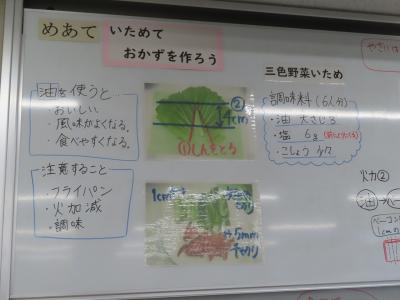 めあて
いためて
おかずを作ろう
油を使うと…
・おいしい
・風味がよくなる。
・食べやすくなる。
注意すること
・フライパン
・火加減
・調味
②
4cm
(1)しんをとる
1cm
5mm
三色野菜いため
調味料(6人分)
・油 大さじ3
・塩 6g
・こしょう 少々
やさいは
火力②
油
ベーコン
1cmの